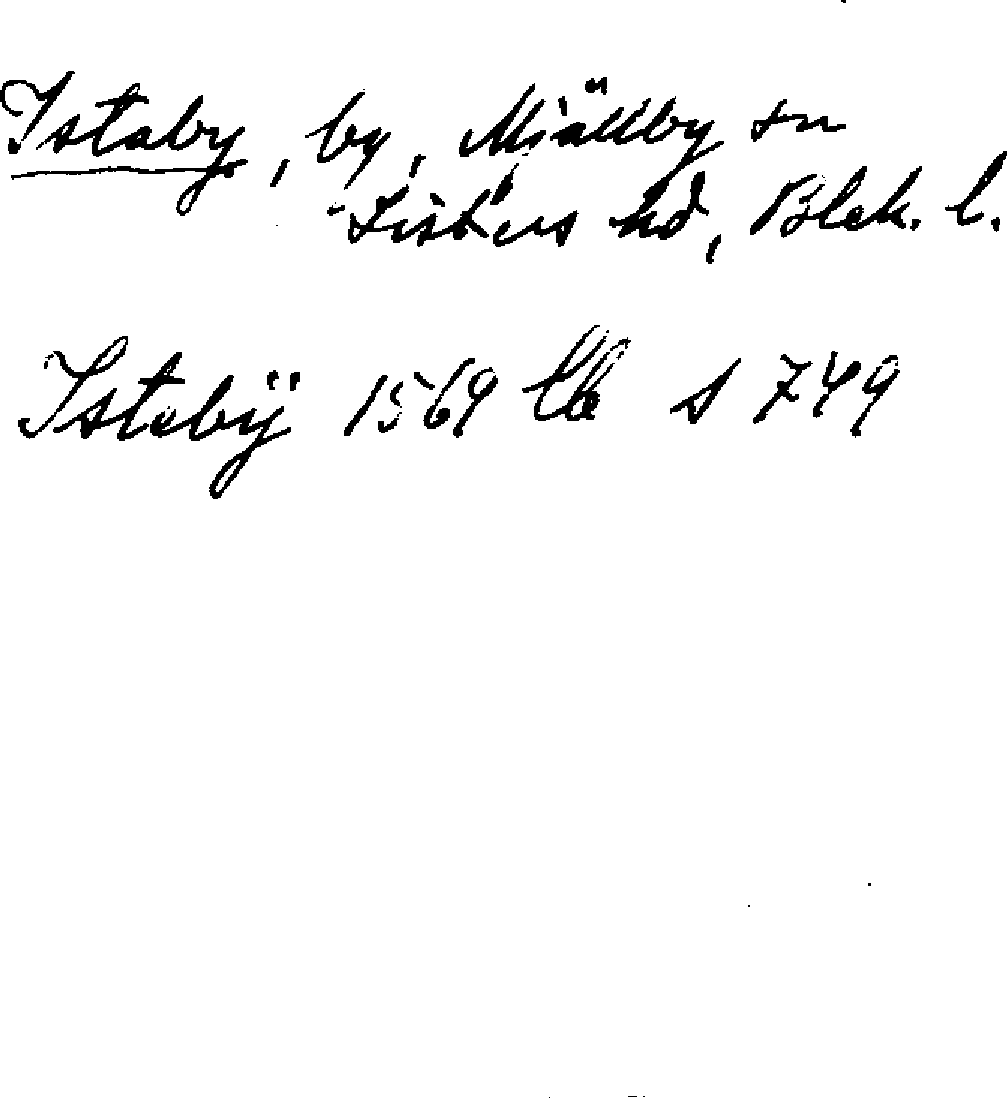 Istaby, by, Mjällby sn
Listers hd, Blek. l.
Istebÿ 1569 Lb s 749